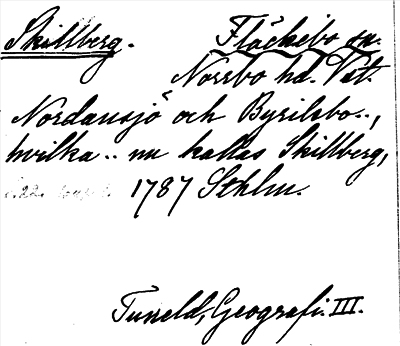 Skillberg. Fläckebo sn.
Norrbo hd. Vstm.
Nordansjö och Byrilsbo..,
hvilka.. nu kallas Skillberg,
1787 Sthlm.
Tuneld, Geografi. III.